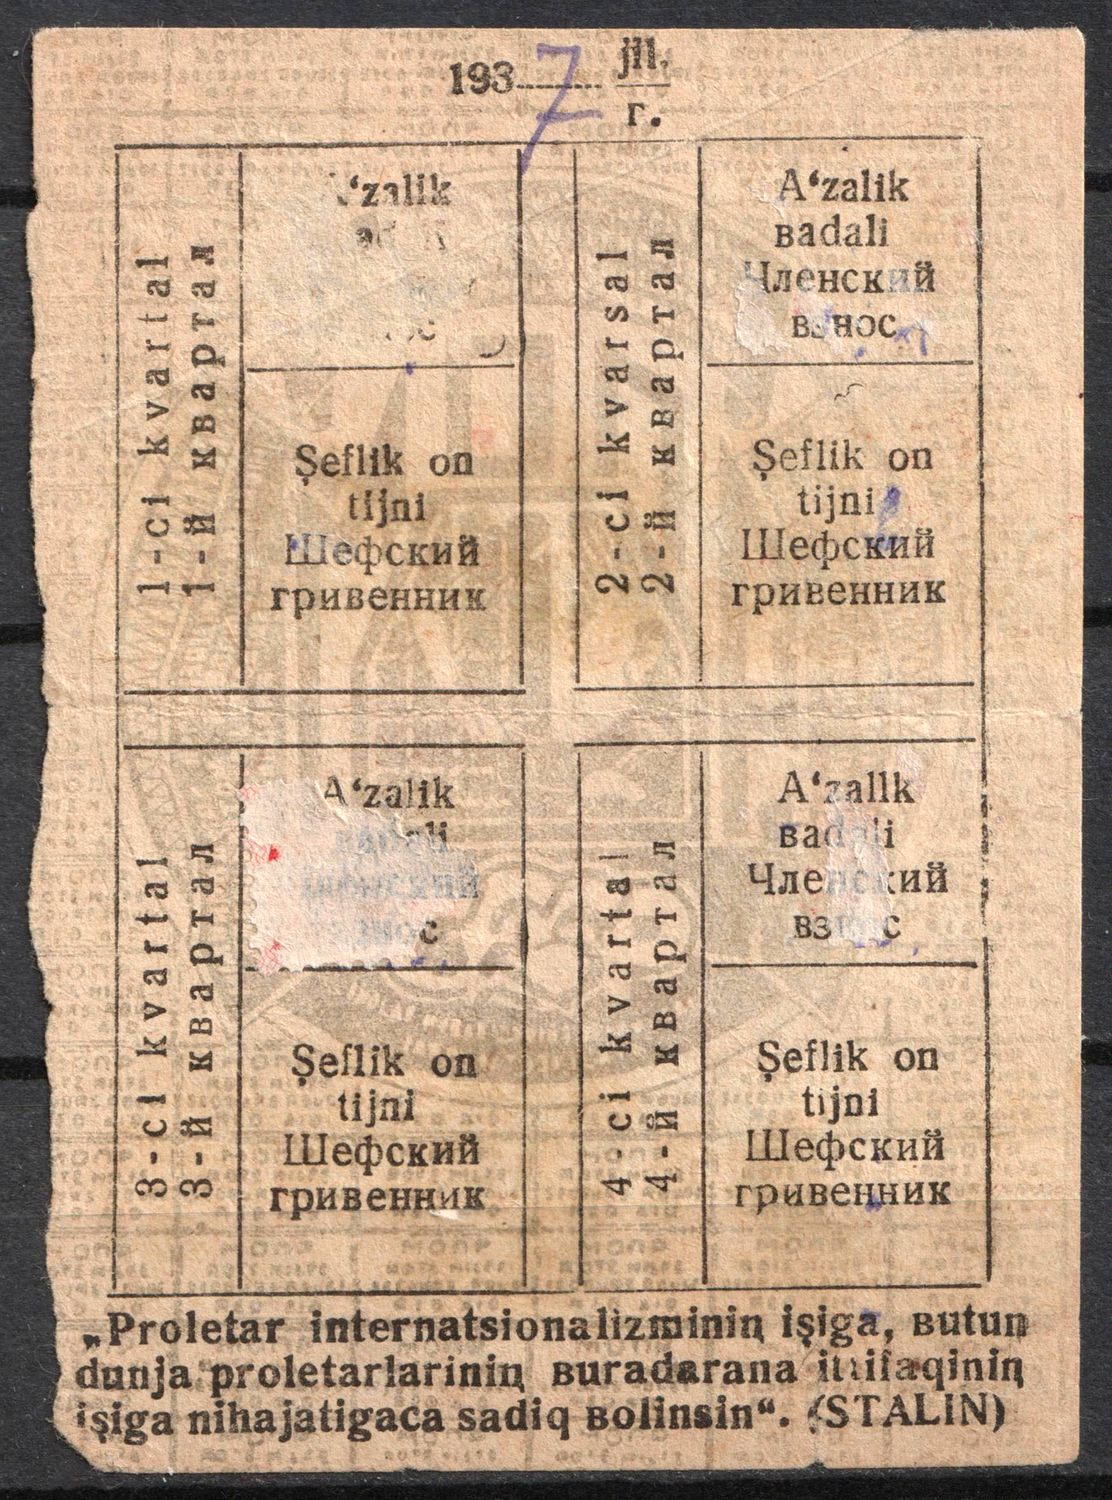 1937 jil.
г.
1-ci kvartal
1-й квартал
zalik
Şeflik on
tijni
Шефский
гривенник
2-ci kvarsal
2-й квартал
A‘zalik
вadali
Членский
взнос
Şeflik on
tijni
Шефский
гривенник
3-ci kvartal
3-й квартал
A‘zalik
Şeflik on
tijni
Шефский
гривенник
4-ci kvartal
4-й квартал
A‘zalik
вadali
Членский
взнос
Şeflik on
tijni
Шефский
гривенник
„Proletar internatsionalizmininꞑ işiga, вutun
dunja proletarlarininꞑ вuradarana ittifaqininꞑ
işiga nihajatigaca sadiq вolinsin“. (STALIN)